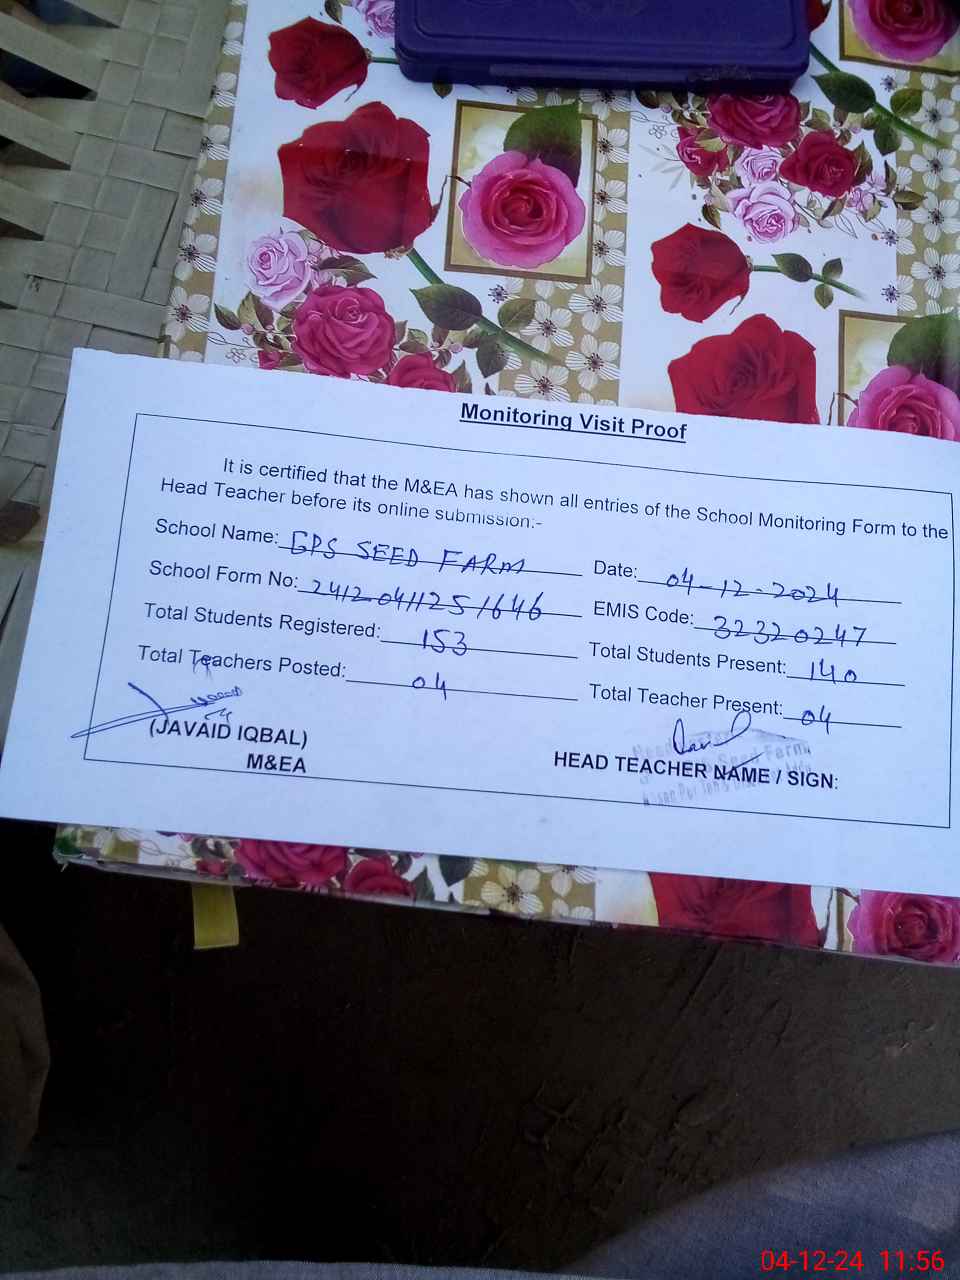 Monitoring Visit Proof
It is certified that the M&EA has shown all entries of the School Monitoring Form to the
Head Teacher before its online submission:-
School Name: GPS SEED FARM Date: 04-12-2024
School Form No: 24120411251646 EMIS Code: 32320247
Total Students Registered: 153 Total Students Present: 140
Total Teachers Posted: 04 Total Teacher Present: 04
(JAVAID IQBAL)
M&EA
HEAD TEACHER NAME / SIGN:
Seed Farm
04-12-24 11.56